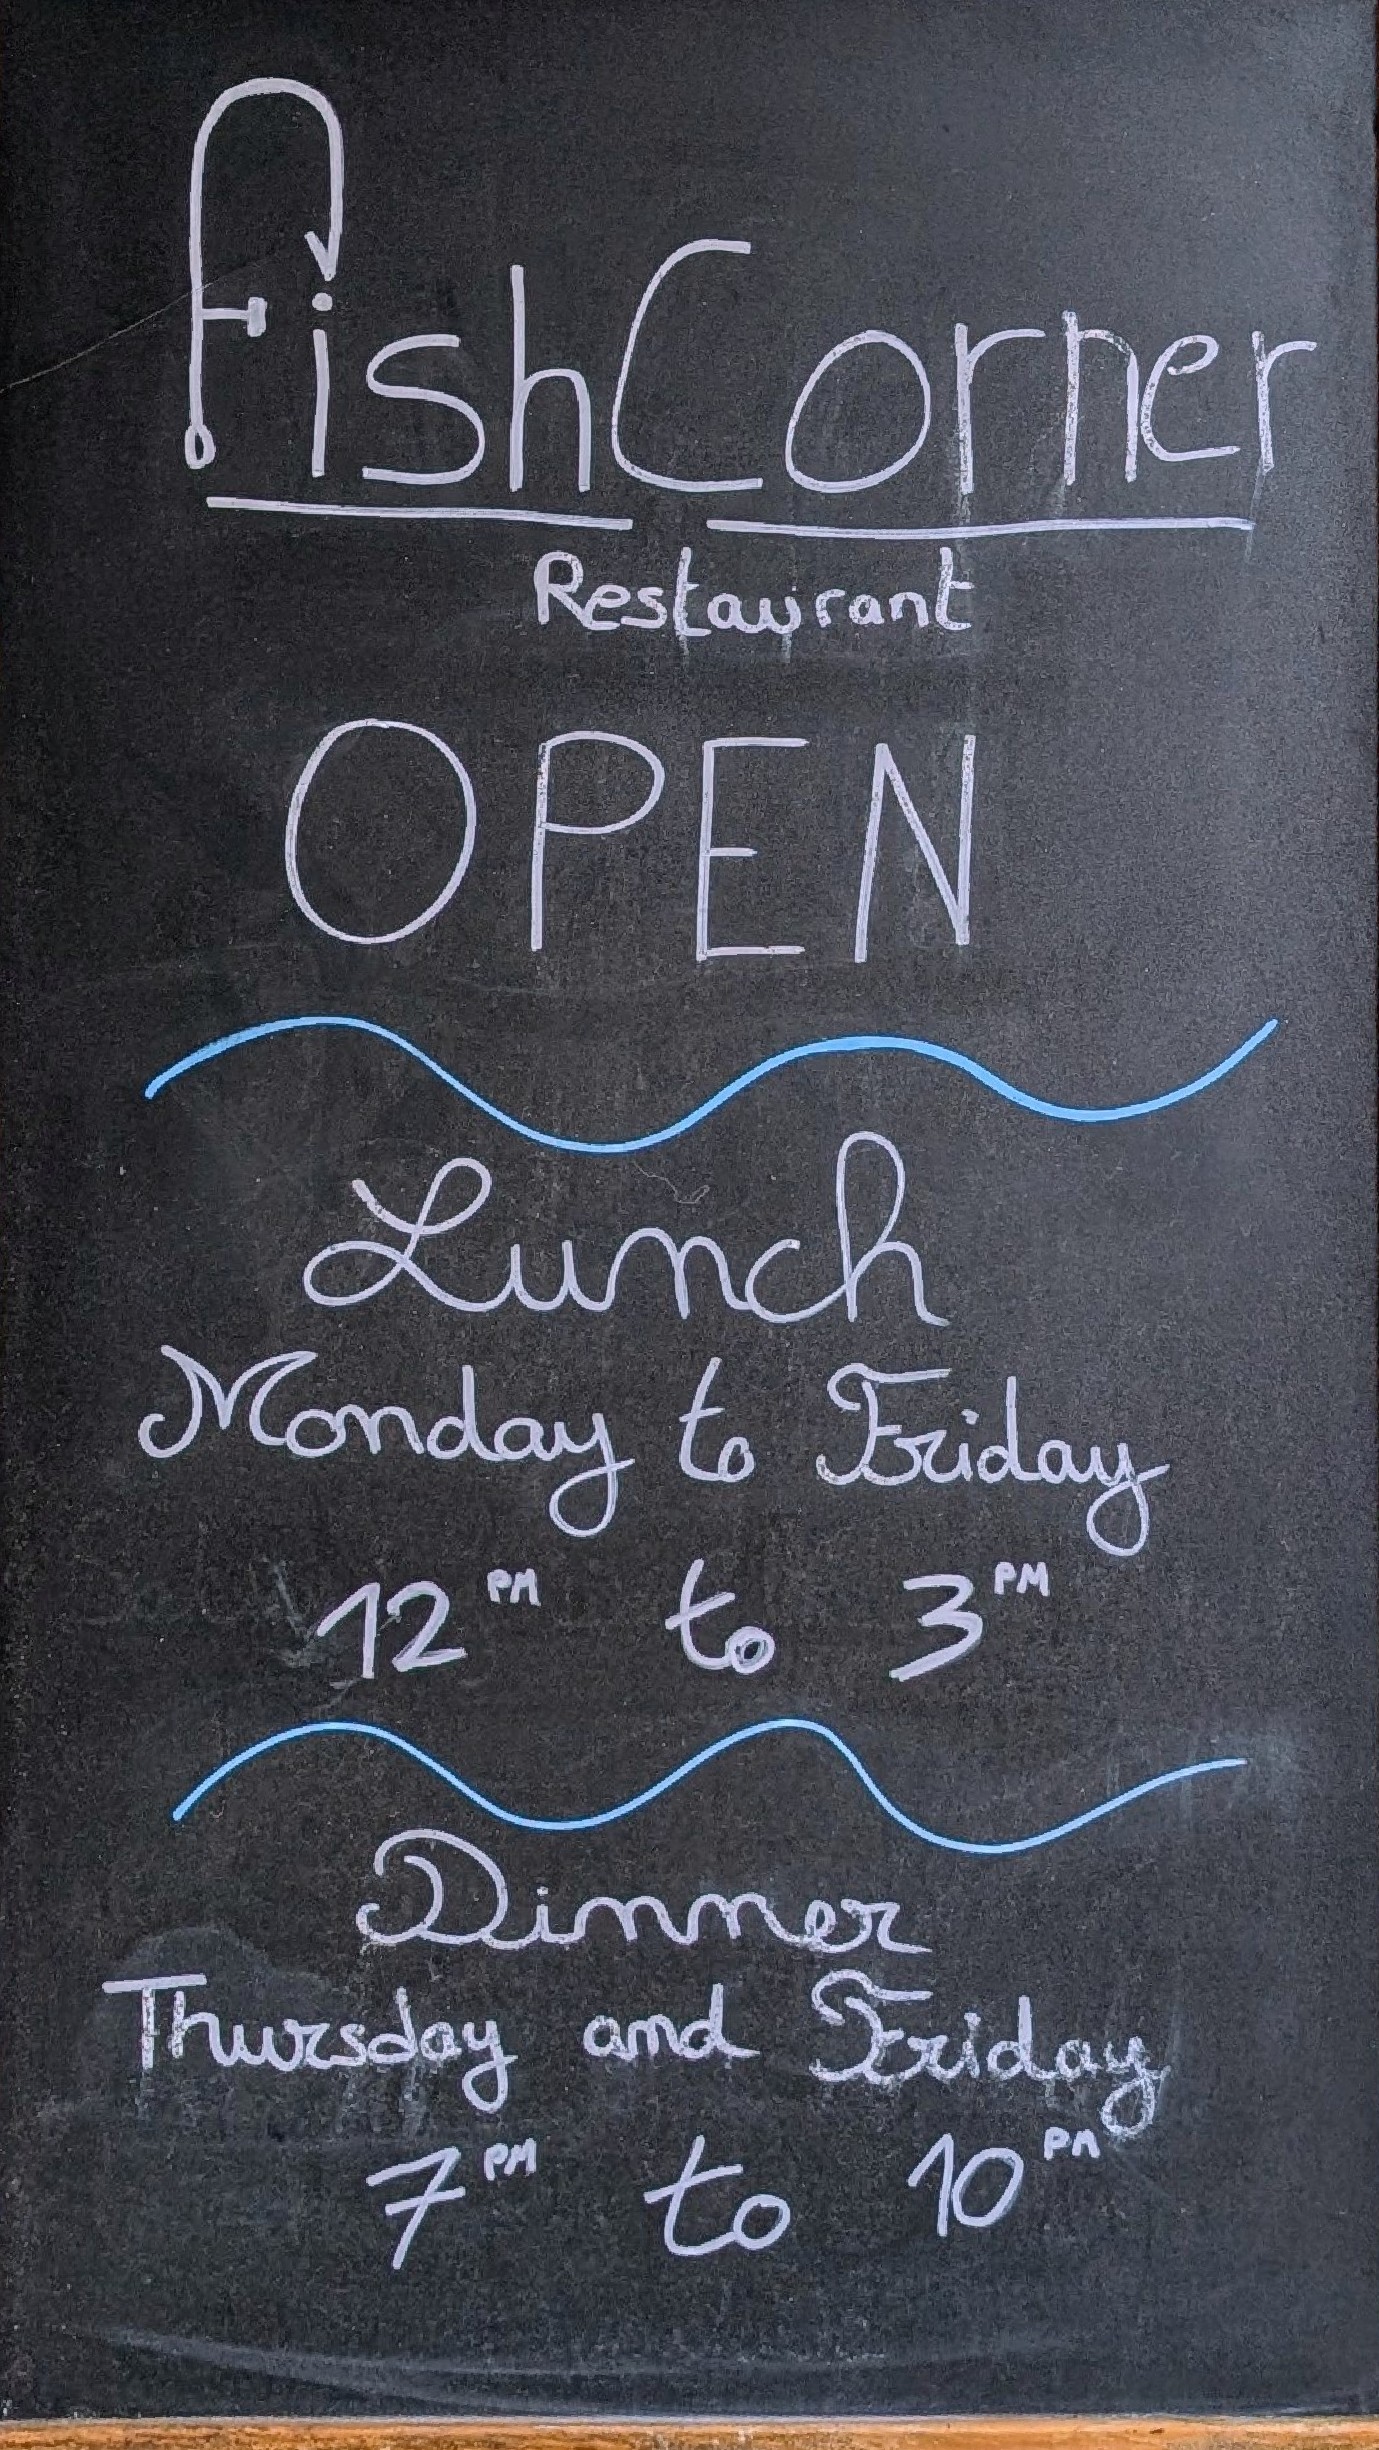 FishCorner
Restaurant
OPEN
Lunch
Monday to Friday
12 PM to 3 PM
Dinner
Thursday and Friday
7 PM to 10 PM